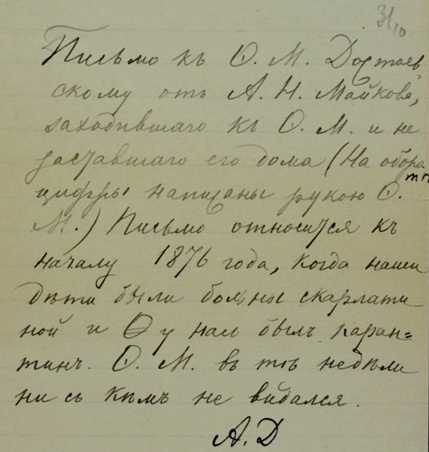 31/10
Письмо къ Ѳ. М. Достоев
скому отъ А. Н. Майкова,
заходившаго къ Ѳ. М. и не
заставшаго его дома (На оборо
тѣ
цифры написаны рукою Ѳ.
М.) Письмо относится къ
началу 1876 года, когда наши
дѣти были больны скарлати
ной и у насъ былъ каран=
тинъ. Ѳ. М. въ тѣ недѣли
ни съ кѣмъ не видался.
А. Д